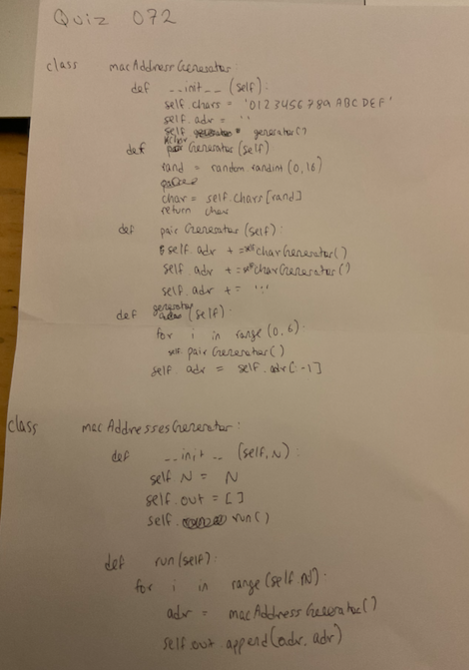 Quiz 072
class macAddressGenerator:
def __init__ (self):
self.chars = '0123456789ABCDEF'
self.adr = ''
self. generator()
def charGenerator(self)
rand = random.randint(0,16)
char = self.chars[rand]
return char
def pairGenerator(self):
self.adr += charGenerator()
self.adr += charGenerator()
self.adr += ':'
def generator (self):
for i in range(0,6):
pairGenerator()
self.adr = self.adr[:-1]
class macAddressesGenerator:
def __init__ (self,N):
self.N = N
self.out = []
self. run()
def run(self):
for i in range(self.N):
adr = macAddressGenerator()
self.out.append(adr.adr)